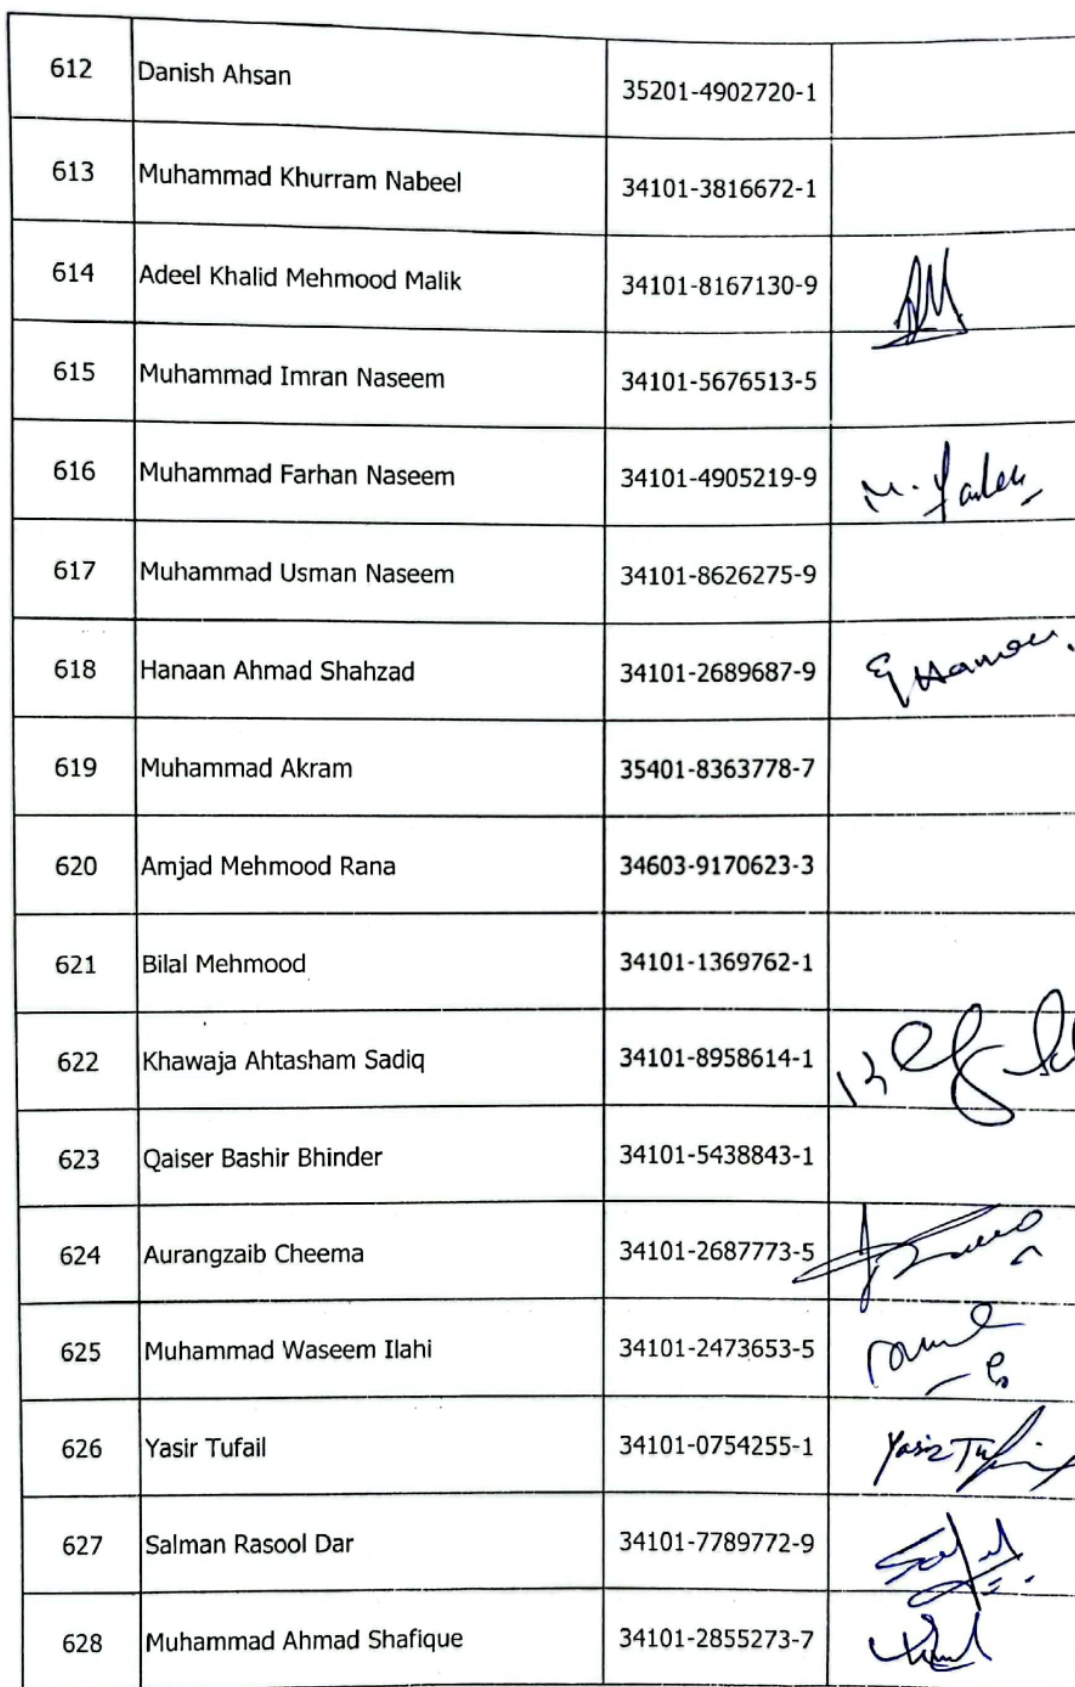 612 Danish Ahsan 35201-4902720-1
613 Muhammad Khurram Nabeel 34101-3816672-1
614 Adeel Khalid Mehmood Malik 34101-8167130-9
615 Muhammad Imran Naseem 34101-5676513-5
616 Muhammad Farhan Naseem 34101-4905219-9
617 Muhammad Usman Naseem 34101-8626275-9
618 Hanaan Ahmad Shahzad 34101-2689687-9
619 Muhammad Akram 35401-8363778-7
620 Amjad Mehmood Rana 34603-9170623-3
621 Bilal Mehmood 34101-1369762-1
622 Khawaja Ahtasham Sadiq 34101-8958614-1
623 Qaiser Bashir Bhinder 34101-5438843-1
624 Aurangzaib Cheema 34101-2687773-5
625 Muhammad Waseem Ilahi 34101-2473653-5
626 Yasir Tufail 34101-0754255-1
627 Salman Rasool Dar 34101-7789772-9
628 Muhammad Ahmad Shafique 34101-2855273-7